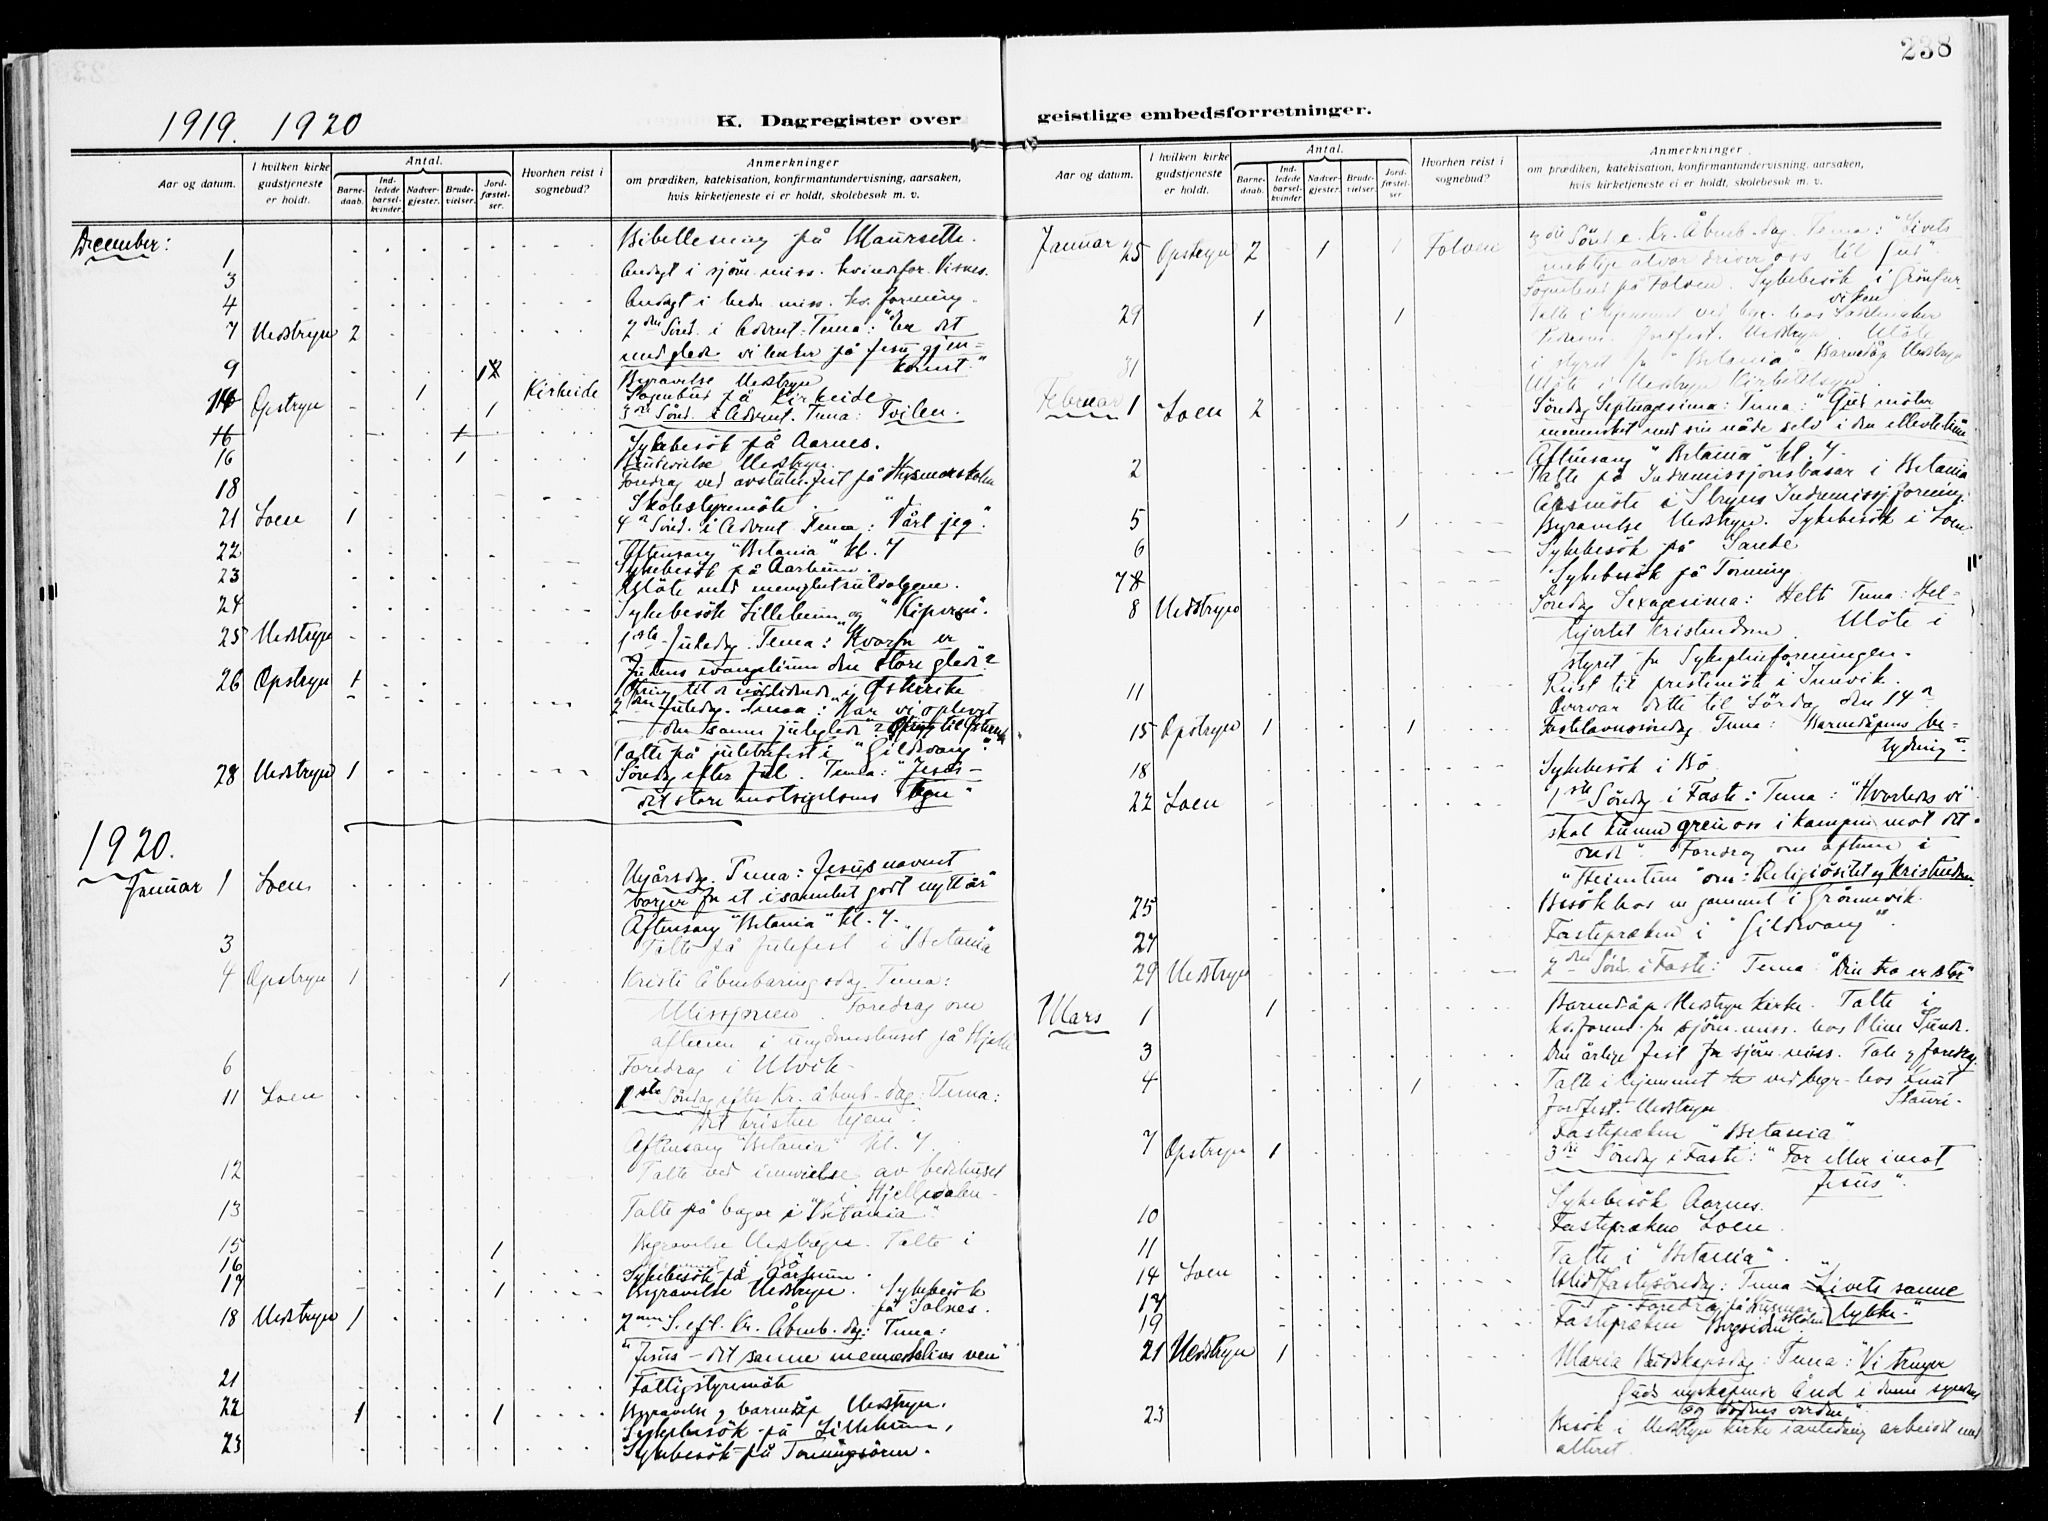 238
1919. 1920
K. Dagregister over
geistlige embedsforretninger.
Aar og datum.
I hvilken kirke gudstjeneste er holdt.
Antal.
Barnedaab.
Indledede barselkvinder.
Nadvergjester.
Brudevielser.
Jordfæstelser.
Hvorhen reist i sognebud?
Anmerkninger
om prædiken, katekisation, konfirmantundervisning, aarsaken,
hvis kirketjeneste ei er holdt, skolebesøk m. v.
December:
1 Bibellesning på Maursette.
3 Andagt i sjøm. miss. kvindefor. Visnes.
4 Andagt i hedn. miss. kv. forening.
7 Nedstryn 2 2den Sønd. i Advent. Tema: "Er det
med glede vi tenker på Jesu gjen-
komst."
9 1 Begravelse Nedstryn
14 Opstryn 1 1 Kirkeide Sognebud på Kirkeide
3die Sønd. i Advent. Tema: Tvilen.
16 1 Sykebesök på Aarnes.
16 1 Brudevielse Nedstryn.
18 Foredrag ved avslutn. fest på Husmorskolen
Skolestyremöte.
21 Loen 1 4de Sönd. i Advent. Tema: "Vårt jeg".
Aftensang "Betania" kl. 7
22 Sykebesök på Aarheim.
23 Möte med menighetsutvalgene.
24 Sykebesök Lilleheim og "Kipren".
25 Nedstryn 1ste Juledag. Tema: "Hvorfor er
Julens evangelium den store glede"?
Ofring til de nödlidende i Østerrike
26 Opstryn 1 2den Juledag. Tema: "Har vi oplevet
den sanne juleglede"? Ofring til Østerrike
Talte på juletrefest i "Gildevang".
28 Nedstryn 1 Söndag efter Jul. Tema: "Jesus -
det store motsigelsens tegn"
1920.
Januar 1 Loen Nyårsdag. Tema: Jesusnavnet
borger for et i sannhet godt nytt år"
Aftensang "Betania" kl. 7.
3 Talte på julefest i "Betania"
4 Opstryn 1 1 Kristi Åbenbaringsdag. Tema:
Missjonen. Foredrag om
aftenen i ungdomshuset på Hjelle
6 Foredrag i Ulvik.
11 Loen 1ste Söndag efter Kr. åbenb. dag: Tema:
"Det kristne hjem".
Aftensang "Betania" kl. 7.
12 Talte ved innvielse av bedehuset
i Hjelledalen.
13 Talte på basar i "Betania."
15 1 Begravelse Nedstryn. Talte i
16 Sykebesök på Aarheim.
17 1 Begravelse Nedstryn. Sykebesök
på Solnes.
18 Nedstryn 1 2nen S. eft. Kr. Åbenb. dag: Tema:
"Jesus - det sanne menneskelivs ven"
21 Fattigstyremöte
22 1 1 Begravelse og barnedåp Nedstryn.
Sykebesök på Lilleheim.
23 Sykebesök på Tonningsören.
Aar og datum.
I hvilken kirke gudstjeneste er holdt.
Antal.
Barnedaab.
Indledede barselkvinder.
Nadvergjester.
Brudevielser.
Jordfæstelser
Hvorhen reist i sognebud?
Anmerkninger
om prædiken, katekisation, konfirmantundervisning, aarsaken,
hvis kirketjeneste ei er holdt, skolebesøk m. v.
Januar 25 Opstryn 2 1 1 Folven 3die Sönd. e. Kr. Åbenb. dag. Tema: "Livets
mektige alvor driver oss til Gud".
Sognebud på Folven. Sykebesök i Grönfur-
viken
29 1 1 Talte i hjemmet ved begr. hos
Jordfest. Nedstryn. Möte
i styret for "Betania" Barnedåp Nedstryn
31 Möte i Nedstryn Kirketilsyn.
Februar 1 Loen 2 Söndag Septuagesima: Tema: "Gud möter
mennesket med sin nåde selv i den ellevte time
Aftensang "Betania" kl. 7.
2 Talte på Indremissjonsbasar i Betania
Årsmöte i Stryns Indremissj. forening.
5 1 Begravelse Nedstryn. Sykebesök i Loen.
6 Sykebesök på
7 Sykebesök på Tonning
8 Nedstryn Söndag Sexagesima: Tema: Hel-
hjertet kristendom. Möte i
styret for Sykepleieforeningen.
11 Reist til prestemöte i Innvik.
Overvar dette til Lördag den 14de
15 Opstryn 1 1 Fastelavnssöndag Tema: Barnedåpens be-
tydning".
18 Sykebesök i Bö
22 Loen 1ste Söndag i Faste: Tema: "Hvorledes vi
skal kunne greie oss i kampen mot det
onde". Foredrag om aftenen i
"Heimtun" om: Religiösitet og Kristendom.
25 Besök hos en gammel i Grönnvik.
27 Fastepræken i "Gildevang".
29 Nedstryn 2den Sönd. i Faste: Tema: "Din tro er stor"
Mars 1 1 Barnedåp Nedstryn kirke. Talte i
kv. foren. for sjöm. miss. hos Oline Sunde.
3 Den årlige fest for sjöm. miss. Tale og foredrag.
4 1 Talte i hjemmet ved begr. hos Knut
Stauri.
Jordfest. Nedstryn
Fastepræken "Betania"
7 Opstryn 1 3die Söndag i Faste: "For eller imot
Jesus".
Sykebesök Aarnes.
10 Fastepræken Loen.
11 Talte i "Betania".
14 Loen Midtfastesöndag: Tema "Livets sanne
lykke"
17 Foredrag på Husmorskolen
19 Fastepræken Bergsiden
21 Nedstryn 1 Maria Budskapsdag: Tema: "Vi trenger
Guds nyskapende Ånd i denne syndens
og dödens verden".
23 Besök i Nedstryn kirke i anledning arbeidet med
alteret.